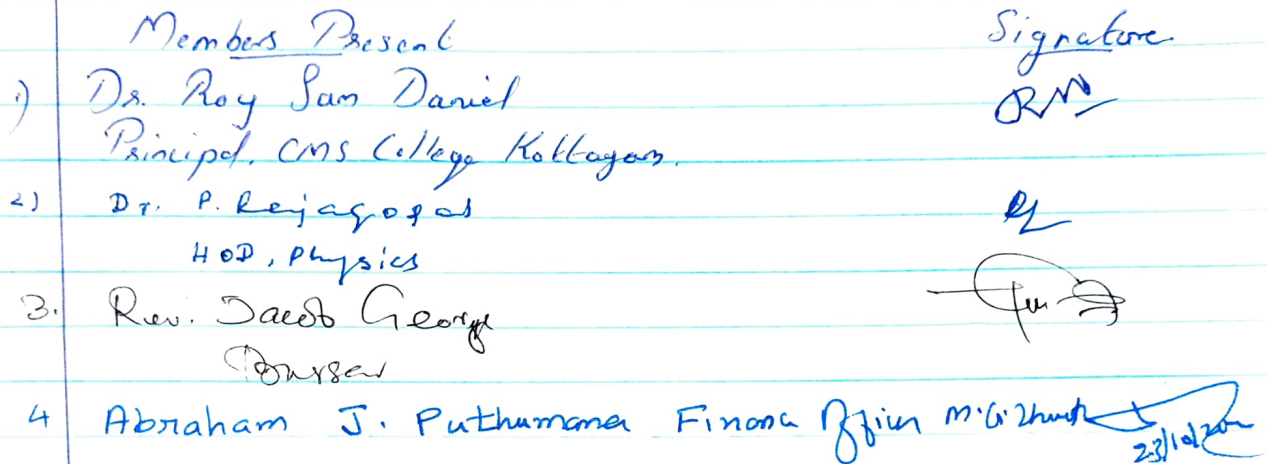 Members Present Signature
1) Dr. Roy Sam Daniel
Principal, CMS College Kottayam.
2) Dr. P. Rajagopal
HOD, Physics
3. Rev. Jacob George
Bursar
4 Abraham J. Puthumana Finance Officer M.G.
23/10/